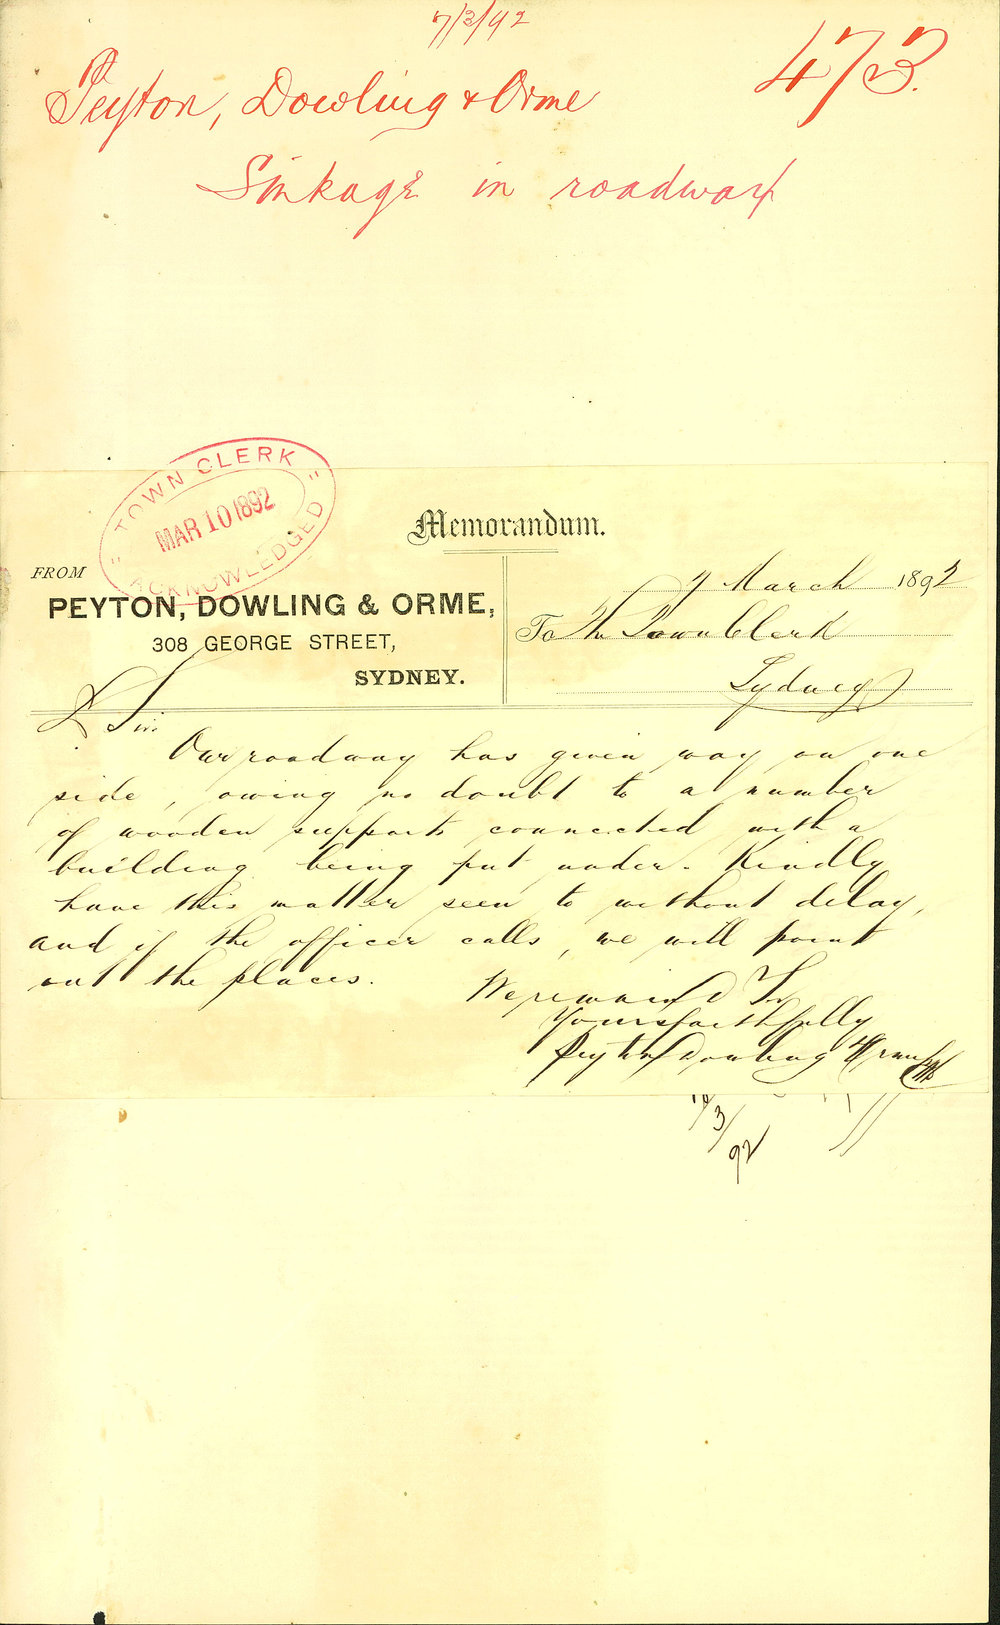 7/3/92
473.
Peyton, Dowling & Orme
Sinkage in roadway
TOWN CLERK
MAR 10 1892
ACKNOWLEDGED
Memorandum.
FROM
PEYTON, DOWLING & ORME,
308 GEORGE STREET,
SYDNEY.
7 March 1892
To The Town Clerk
Sydney
D Sir
Our roadway has given way on one
side, owing no doubt to a number
of wooden supports connected with a
building being put under. Kindly
have this matter seen to without delay,
and if the officer calls, we will point
out the places.
We remain D Sir
Yours faithfully
Peyton Dowling & Orme
10/3/92